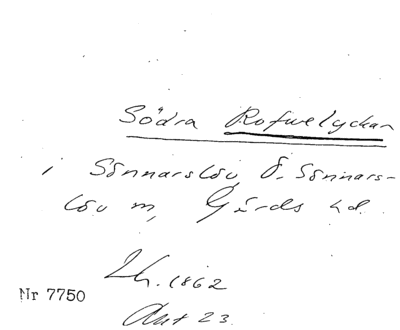 Södra Rofwelyckan
i Sönnarslöv, Ö. Sönnars-
löv m, Gärds hd.
Lh. 1862
Nr 7750
Akt 23.